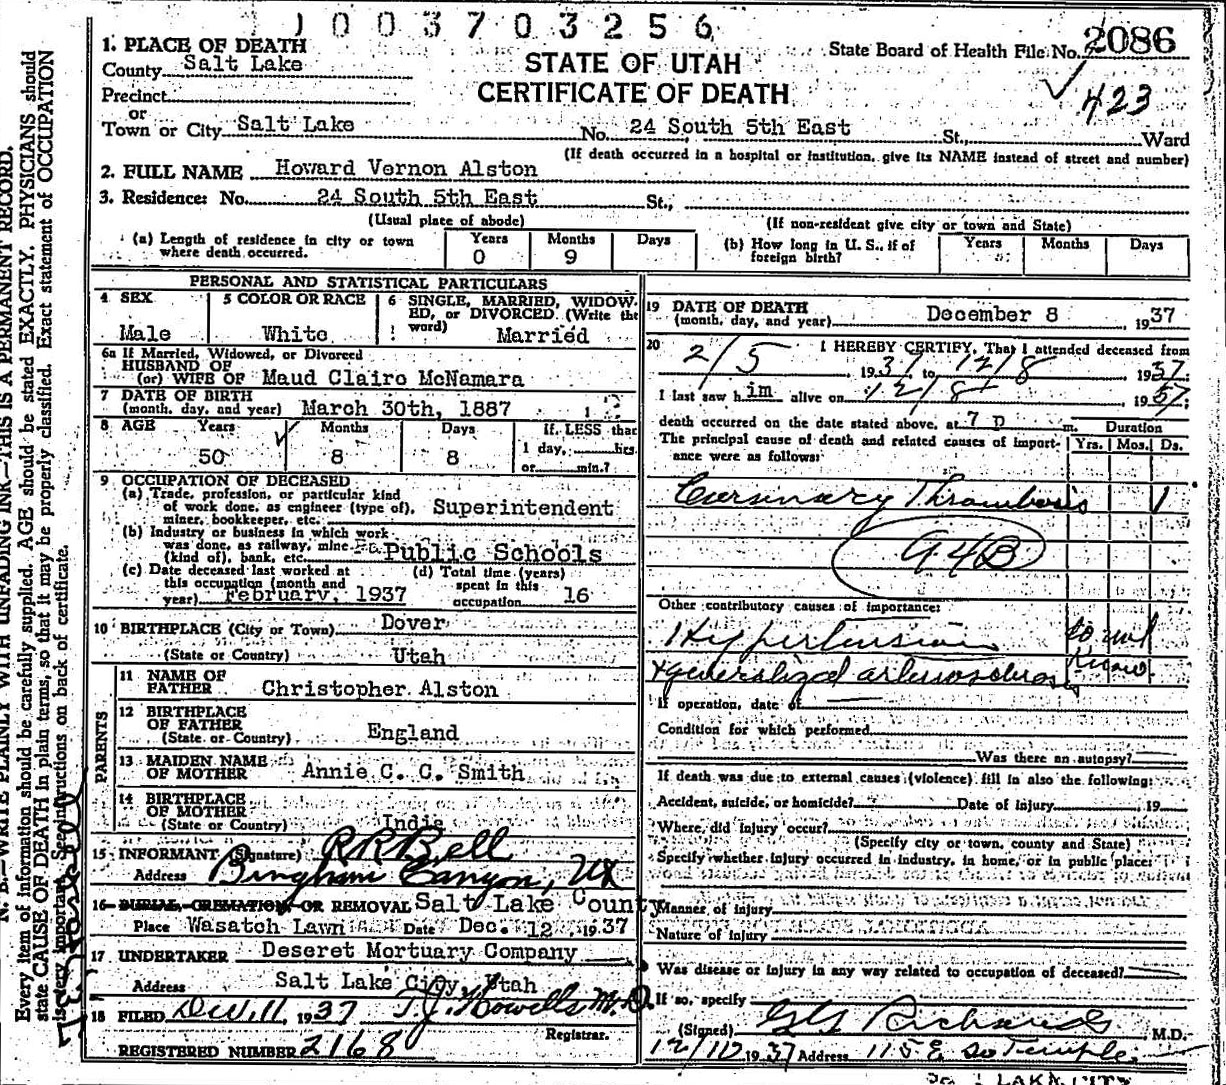 1003703256
1. PLACE OF DEATH
County Salt Lake
STATE OF UTAH
CERTIFICATE OF DEATH
State Board of Health File No. 2086
423
Precinct
or
Town or City Salt Lake No. 24 South 5th East St., Ward
(If death occurred in a hospital or institution, give its NAME instead of street and number)
2. FULL NAME Howard Vernon Alston
3. Residence: No. 24 South 5th East St.,
(Usual place of abode) (If non-resident give city or town and State)
(a) Length of residence in city or town where death occurred. Years 0 Months 9 Days
(b) How long in U. S., if of foreign birth? Years Months Days
PERSONAL AND STATISTICAL PARTICULARS
4 SEX 5 COLOR OR RACE 6 SINGLE, MARRIED, WIDOW-
ED, or DIVORCED. (Write the
word)
Male White Married
6a If Married, Widowed, or Divorced
HUSBAND OF
(or) WIFE OF Maud Claire McNamara
7 DATE OF BIRTH
(month, day, and year) March 30th, 1887
8 AGE Years Months Days If LESS than
1 day, hrs.
50 8 8 or min.?
9 OCCUPATION OF DECEASED
(a) Trade, profession, or particular kind
of work done, as engineer (type of),
miner, bookkeeper, etc. Superintendent
(b) Industry or business in which work
was done, as railway, mine
(kind of), bank, etc. Public Schools
(c) Date deceased last worked at
this occupation (month and
year) February, 1937
(d) Total time (years)
spent in this
occupation 16
10 BIRTHPLACE (City or Town) Dover
(State or Country) Utah
PARENTS
11 NAME OF
FATHER Christopher Alston
12 BIRTHPLACE
OF FATHER
(State or Country) England
13 MAIDEN NAME
OF MOTHER Annie C. C. Smith
14 BIRTHPLACE
OF MOTHER
(State or Country) India
15 INFORMANT (Signature) R R Bell
Address Bingham Canyon, Ut
16 BURIAL, CREMATION, OR REMOVAL Salt Lake County
Place Wasatch Lawn Date Dec. 12, 1937
17 UNDERTAKER Deseret Mortuary Company
Address Salt Lake City, Utah
18 FILED Dec 11, 1937 T. J. Howells M. D.
Registrar.
REGISTERED NUMBER 2168
19 DATE OF DEATH
(month, day, and year) December 8 1937
20 I HEREBY CERTIFY, That I attended deceased from
2/5, 1937 to 12/8 1937
I last saw him alive on 12/8 1937,
death occurred on the date stated above, at 7 p m.
The principal cause of death and related causes of import-
ance were as follows:
Duration
Yrs. Mos. Ds.
Coronary Thrombosis 1
94B
Other contributory causes of importance:
Hypertension do not
+ generalized arteriosclerosis know
If operation, date of
Condition for which performed
Was there an autopsy?
If death was due to external causes (violence) fill in also the following:
Accident, suicide, or homicide? Date of injury 19
Where did injury occur?
(Specify city or town, county and State)
Specify whether injury occurred in industry, in home, or in public place:
Manner of injury
Nature of injury
Was disease or injury in any way related to occupation of deceased?
If so, specify
(Signed) G G Richards M.D.
12/10 1937 Address 115 E So Temple
LAKE CITY
N. B.—WRITE PLAINLY WITH UNFADING INK—THIS IS A PERMANENT RECORD.
Every item of information should be carefully supplied. AGE should be stated EXACTLY. PHYSICIANS should
state CAUSE OF DEATH in plain terms, so that it may be properly classified. Exact statement of OCCUPATION
is very important. See instructions on back of certificate.